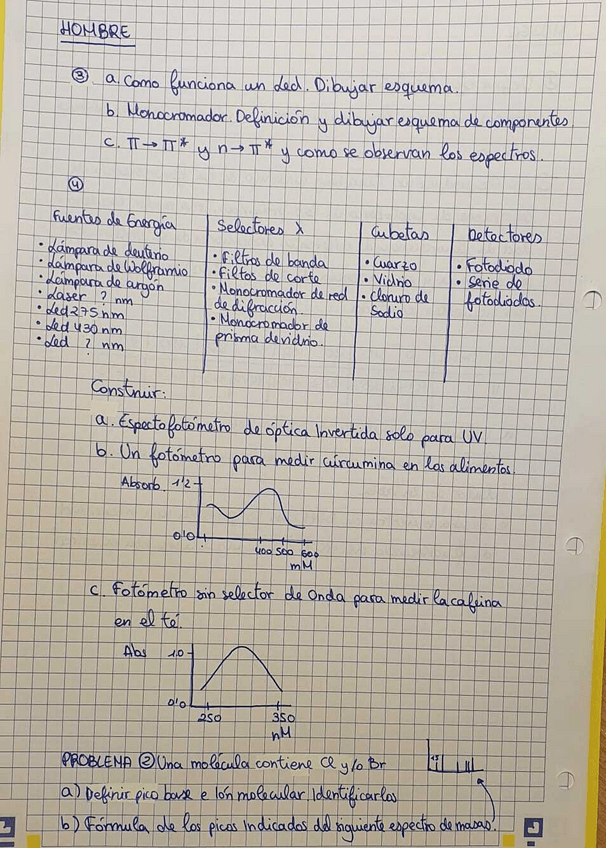 HOMBRE
③ a. Como funciona un Led. Dibujar esquema.
b. Monocromador. Definición y dibujar esquema de componentes
c. π→π* y n→π* y como se observan los espectros.
④
Fuentes de Energía
• Lámpara de deuterio
• Lámpara de Wolframio
• Lámpara de argón
• Laser ? nm
• Led 275 nm
• Led 430 nm
• Led ? nm
Selectores λ
• Filtros de banda
• Filtos de corte
• Monocromador de red
de difracción
• Monocromador de
prisma de vidrio.
Cubetas
• Cuarzo
• Vidrio
• Cloruro de
Sodio
Detectores
• Fotodiodo
• Serie de
fotodiodos.
Construir:
a. Espectofotómetro de óptica Invertida solo para UV
b. Un fotómetro para medir cúrcumina en los alimentos.
Absorb. 1'2
0'0
400 500 600
mM
c. Fotómetro sin selector de Onda para medir la cafeina
en el té.
Abs 1.0
0'0
250 350
nM
PROBLEMA ② Una molécula contiene Cl y/o Br
a) Definir pico base e Ión molecular. Identificarlos
b) Fórmula de los picos indicados del siguiente espectro de masas.